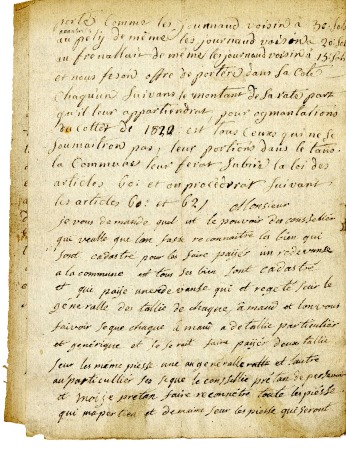 porté Comme les journaud voisin a 30 sols
au pely de même les journaud voisin a 20 sols
au frenallair de même les journaud voisin a 15 sols
et nous feson offre de portér dans la Cote
Chaquun Suivans le montant de sa rate part
qu'il leur appartiendrat pour ogmantations
du Collet de 1820 est tous Ceurs qui ne se
Soumaitron pas leur portions dans le tans
la Commune leur ferat Subire la loi des
articles 60: et on procéërrat Suivant
les articles 60: et 62/ Monsieur
je vous demande sud il le pouvoir du consellier
qui veulle que l'an fasse reconnaitre les bien qui
sont cadastré pour les faire paiyér un redevanse
a la commune est tous ses bien sont cadastré
et qui paiye une redevanse qui et regeté sur le
generalle des tallie de chaque amaud et lon vous
faivoir se que chaque amaud a de tallie particulier
et generique et lo serait faire paiyér deux tallie
seur les même piesse une au generalle ratte et l'autre
au particullier ses se que le consellie prétan de persevoir
et moi je prétan faire remettre toute les piesse
qui mapartien et demaine sur les piesse qui seront